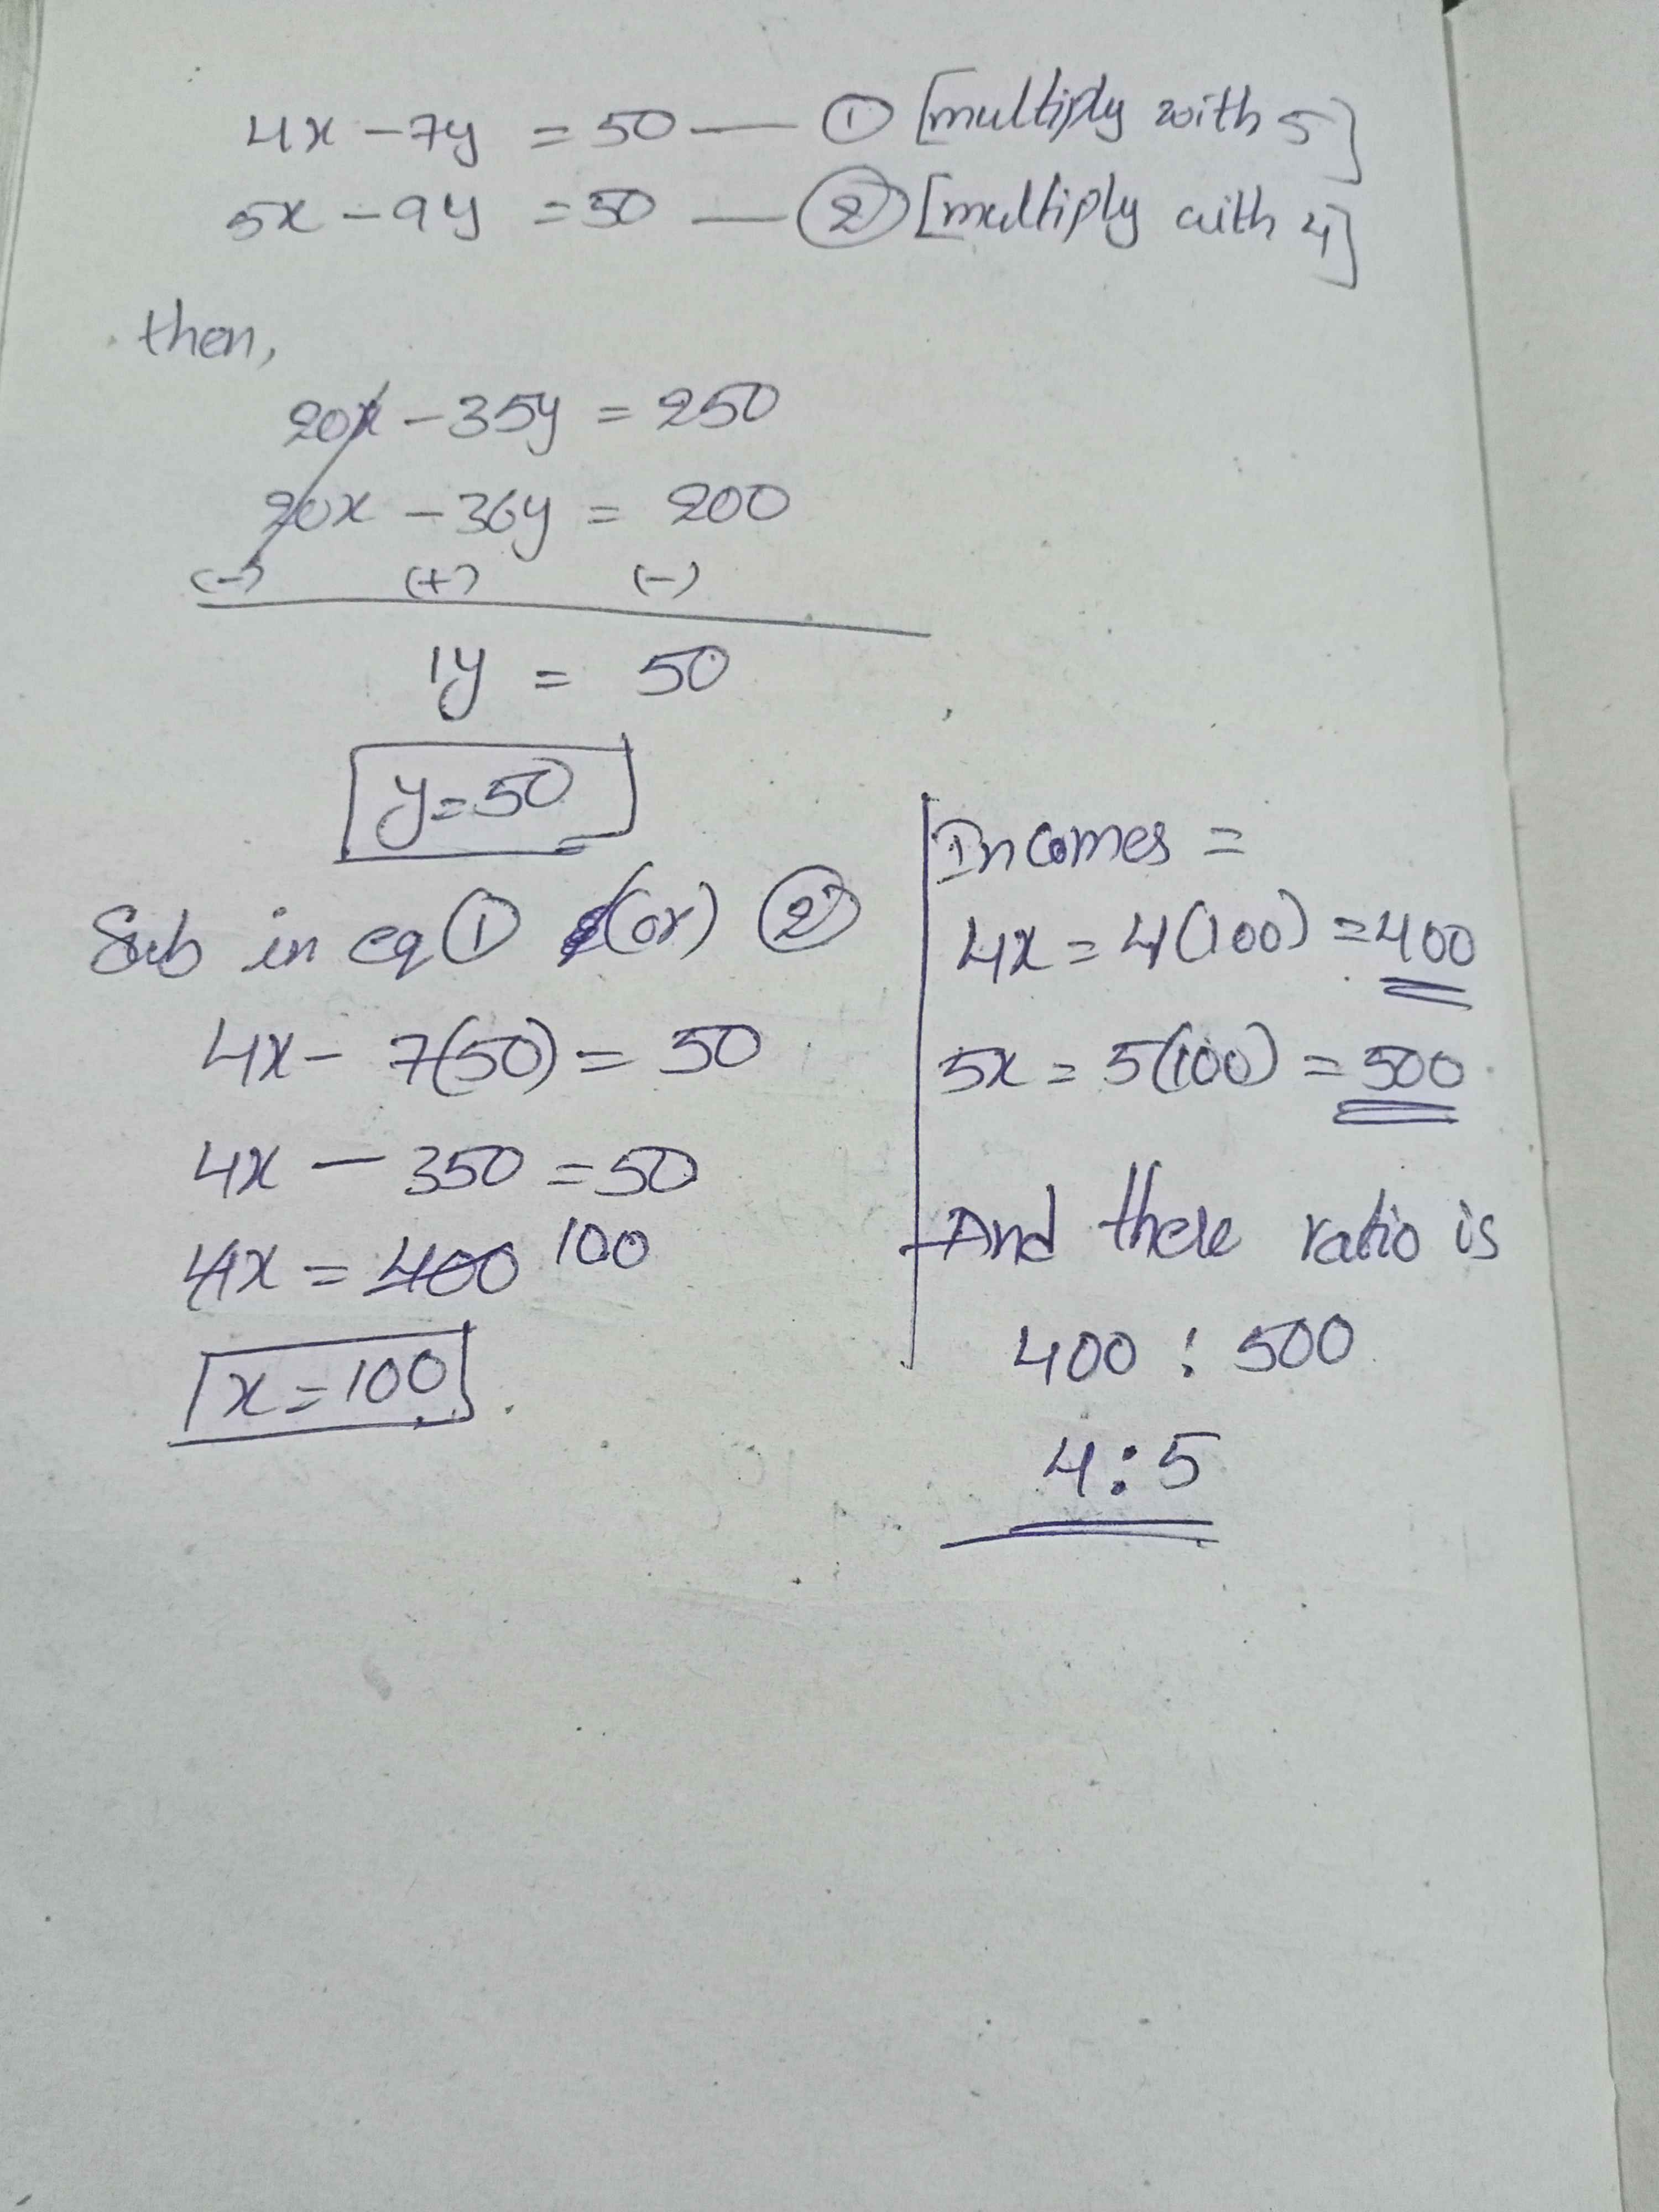 4x - 7y = 50 — ① [multiply with 5]
5x - 9y = 50 — ② [multiply with 4]
then,
20x - 35y = 250
20x - 36y = 200
(-) (+) (-)
1y = 50
y = 50
Sub in eq ① (or) ②
4x - 7(50) = 50
4x - 350 = 50
4x = 400 100
x = 100
Incomes =
4x = 4(100) = 400
5x = 5(100) = 500
And there ratio is
400 : 500
4 : 5